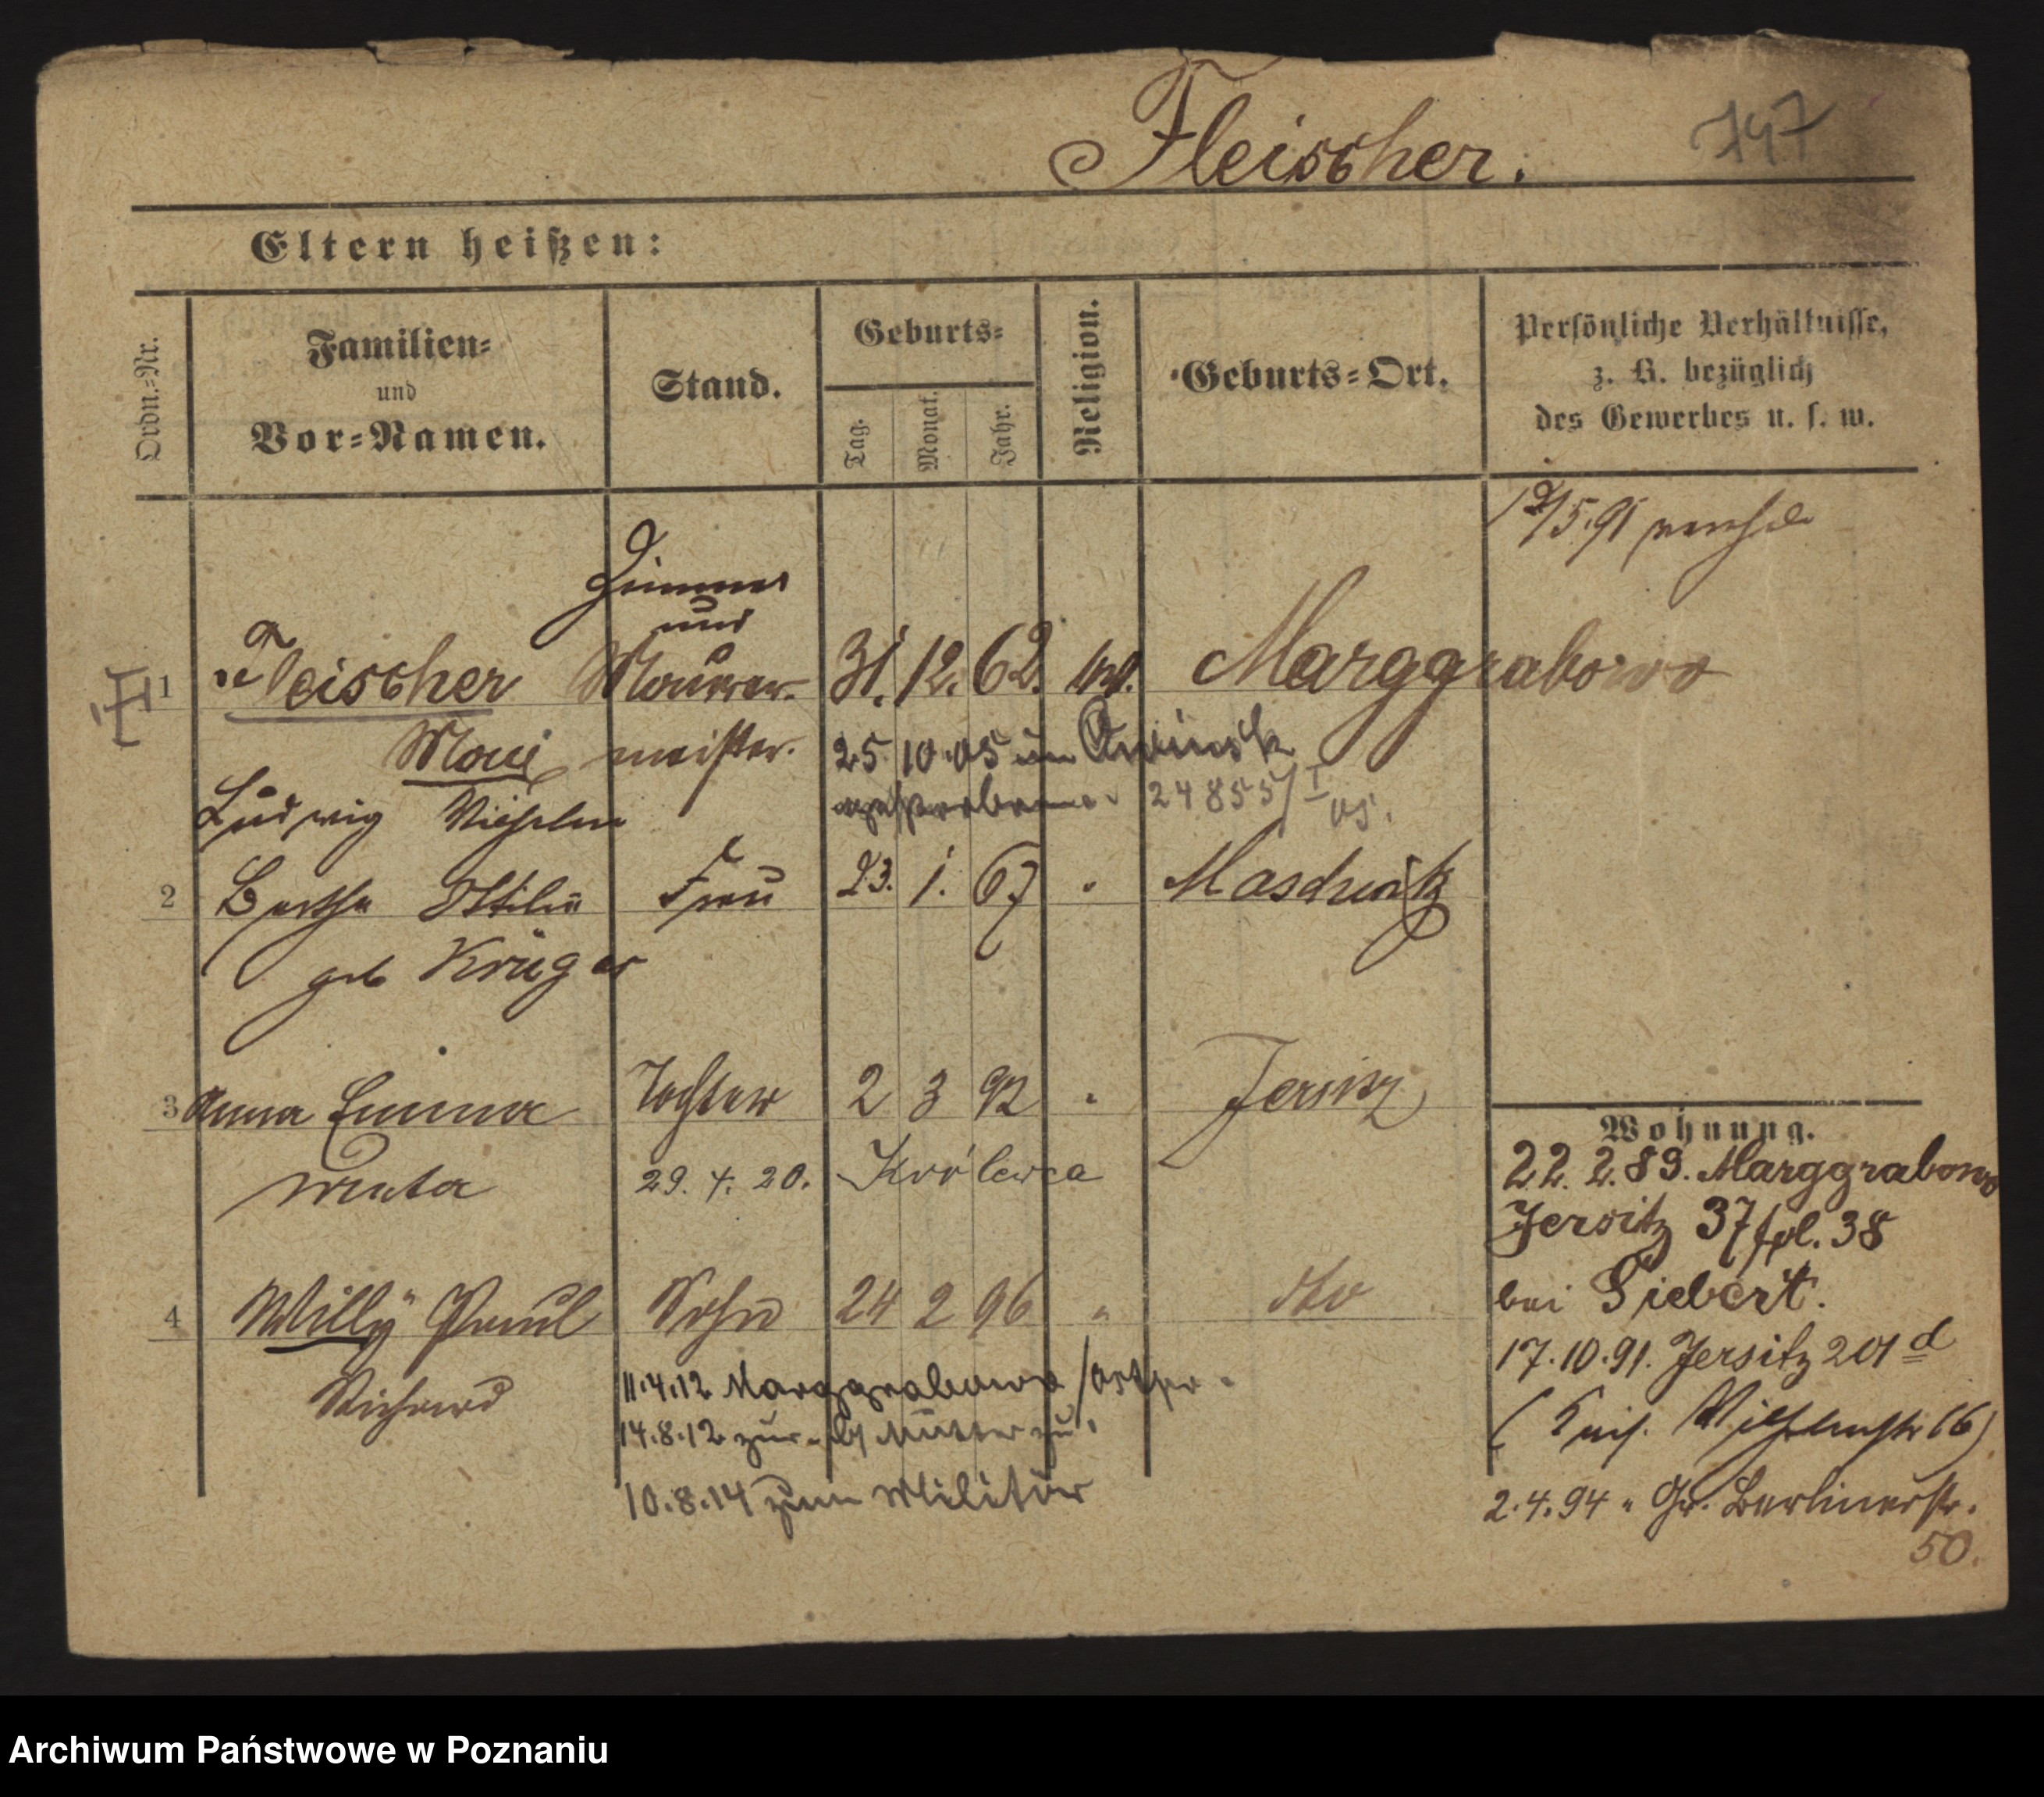 Fleischer.
747
Eltern heißen:
Ordn.-Nr.
Familien-
und
Vor-Namen.
Stand.
Geburts-
Tag.
Monat.
Jahr.
Religion.
Geburts-Ort.
Persönliche Verhältnisse,
z. B. bezüglich
des Gewerbes u. s. w.
5.91
Zimmer
und
1 Fleischer Maurer- 31. 12. 62. Marggrabowo
meister. 25. 10. 05 in
Ludwig Wilhelm gestorben. 24855/I 05.
2 Bertha Ottilie Frau 23. 1. 67 "
geb Krüger
3 Anna Emma Tochter 2 3 92 " Jersitz
29. 4. 20. Królewca
4 Willy Paul Sohn 24 2 96 " dto
Richard 11.4.12 Marggrabowa /Ostpr.
14.8.12 zur. Mutter zu.
10.8.14 zum Militär
Wohnung.
22. 2. 89. Marggrabowo
Jersitz 37/pl. 38
bei Siebert.
17.10.91. Jersitz 201 d
( Kais. Wilhelmstr 66)
2.4.94 " Gr. Berlinerstr.
50.
Archiwum Państwowe w Poznaniu